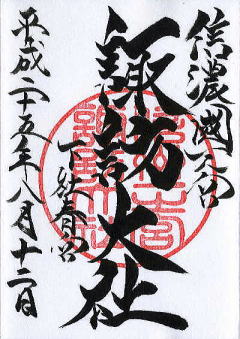 信濃國一宮
諏訪大社
下社春宮
平成二十五年八月十二日